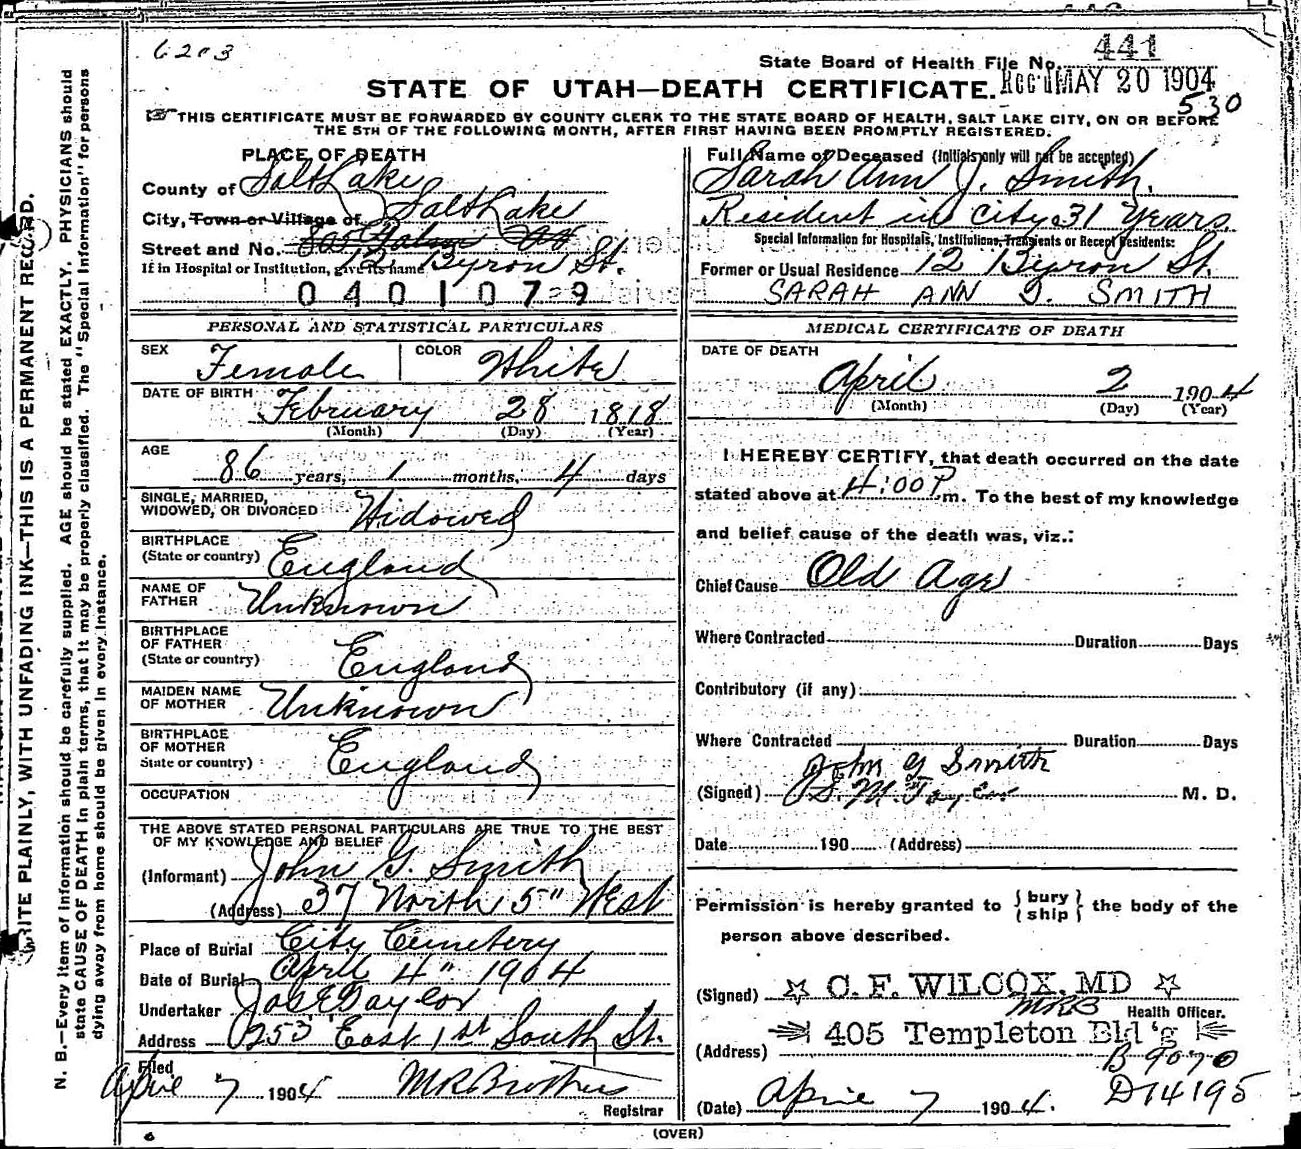 6203
441
State Board of Health File No.
STATE OF UTAH—DEATH CERTIFICATE.
Rec'd MAY 20 1904
530
THIS CERTIFICATE MUST BE FORWARDED BY COUNTY CLERK TO THE STATE BOARD OF HEALTH, SALT LAKE CITY, ON OR BEFORE
THE 5TH OF THE FOLLOWING MONTH, AFTER FIRST HAVING BEEN PROMPTLY REGISTERED.
PLACE OF DEATH
County of Salt Lake
City, Town or Village of Salt Lake
Street and No.
If in Hospital or Institution, give its name 12 Byron St.
0401079
Full Name of Deceased (Initials only will not be accepted)
Sarah Ann J. Smith.
Resident in city 31 Years.
Special Information for Hospitals, Institutions, Transients or Recent Residents:
Former or Usual Residence 12 Byron St.
SARAH ANN J. SMITH
PERSONAL AND STATISTICAL PARTICULARS
SEX Female COLOR White
DATE OF BIRTH February 28 1818
(Month) (Day) (Year)
AGE
86 years, 1 months, 4 days
SINGLE, MARRIED,
WIDOWED, OR DIVORCED Widowed
BIRTHPLACE
(State or country) England
NAME OF
FATHER Unknown
BIRTHPLACE
OF FATHER
(State or country) England
MAIDEN NAME
OF MOTHER Unknown
BIRTHPLACE
OF MOTHER
State or country) England
OCCUPATION
THE ABOVE STATED PERSONAL PARTICULARS ARE TRUE TO THE BEST
OF MY KNOWLEDGE AND BELIEF
(Informant) John G. Smith
(Address) 37 North 5" West
Place of Burial City Cemetery
Date of Burial April 4" 1904
Undertaker Jos E Taylor
Address 253 East 1st South St.
Filed
April 7 1904 M R Brothers
Registrar
MEDICAL CERTIFICATE OF DEATH
DATE OF DEATH
April 2 1904
(Month) (Day) (Year)
I HEREBY CERTIFY, that death occurred on the date
stated above at 4:00 P m. To the best of my knowledge
and belief cause of the death was, viz.:
Chief Cause Old Age
Where Contracted Duration Days
Contributory (if any)
Where Contracted Duration Days
John G Smith
(Signed) M. D.
Date 190 (Address)
Permission is hereby granted to {bury
ship} the body of the
person above described.
(Signed) C. F. WILCOX, MD
MRB Health Officer.
405 Templeton Bld'g
(Address)
B 9070
D14195
(Date) April 7 1904.
(OVER)
WRITE PLAINLY, WITH UNFADING INK—THIS IS A PERMANENT RECORD.
N. B.—Every item of information should be carefully supplied. AGE should be stated EXACTLY. PHYSICIANS should
state CAUSE OF DEATH in plain terms, that it may be properly classified. The "Special Information" for persons
dying away from home should be given in every instance.